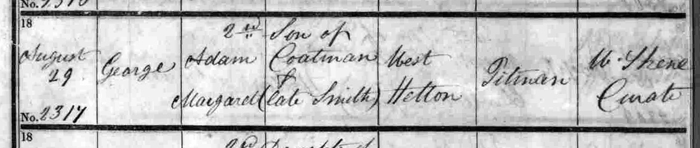 18
August
29
George
2nd Son of
Adam Coatman
&
Margaret (late Smith)
West
Hetton
Pitman
W. Skene
Curate
No. 2317
18